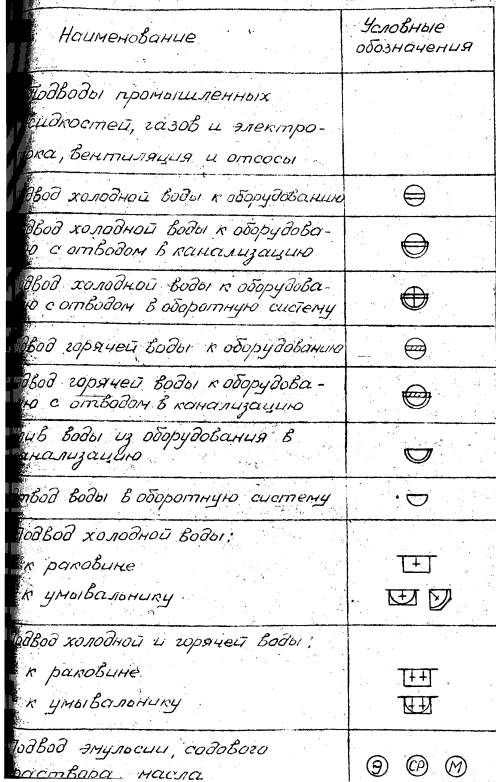 Наименование
Условные
обозначения
Подводы промышленных
жидкостей, газов и электро-
тока, вентиляция и отсосы
двод холодной воды к оборудованию
двод холодной воды к оборудова-
ю с отводом в канализацию
двод холодной воды к оборудова-
ю с отводом в оборотную систему
двод горячей воды к оборудованию
двод горячей воды к оборудова-
ю с отводом в канализацию
лив воды из оборудования в
анализацию
твод воды в оборотную систему
Подвод холодной воды:
к раковине
к умывальнику
одвод холодной и горячей воды:
к раковине
к умывальнику
Подвод эмульсии, содового
раствора масла
Э СР М